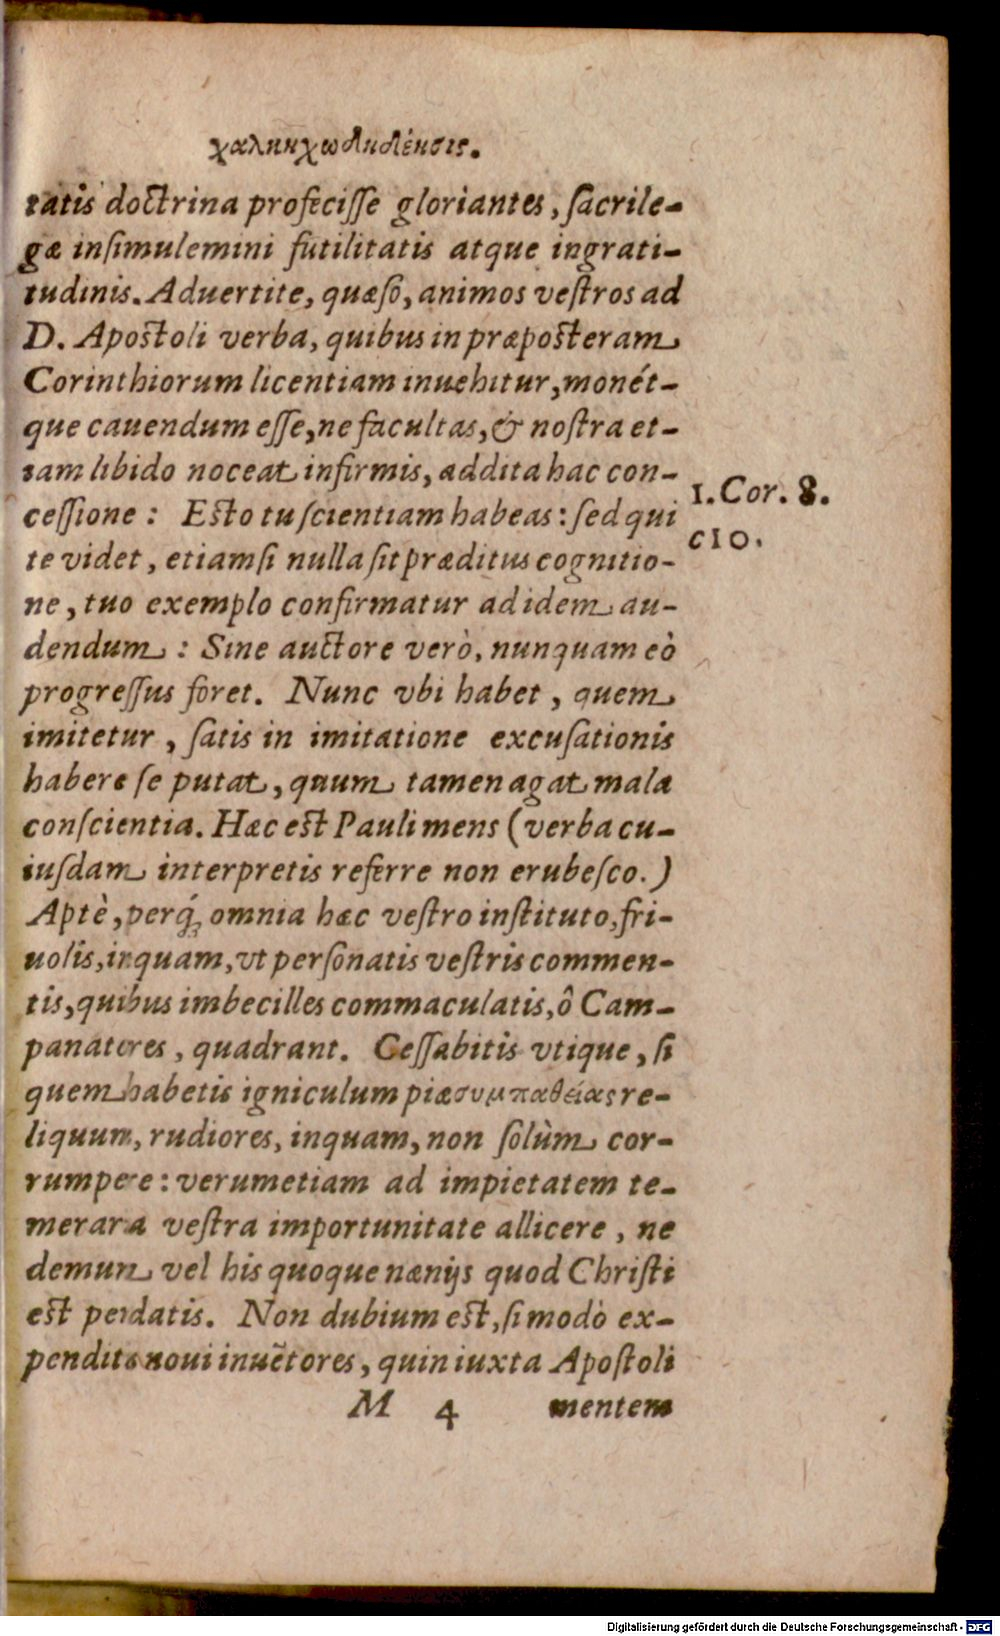 χαλκηχωδικδένσις.
tatis doctrina profecisse gloriantes, sacrile-
gæ insimulemini futilitatis atque ingrati-
tudinis. Aduertite, quæso, animos vestros ad
D. Apostoli verba, quibus in præposteram
Corinthiorum licentiam inuehitur, monét-
que cauendum esse, ne facultas, & nostra et-
iam libido noceat infirmis, addita hac con-
cessione: Esto tu scientiam habeas: sed qui
te videt, etiamsi nulla sit præditus cognitio-
ne, tuo exemplo confirmatur ad idem au-
dendum: Sine auctore verò, nunquam eò
progressus foret. Nunc vbi habet, quem
imitetur, satis in imitatione excusationis
habere se putat, quum tamen agat mala
conscientia. Hæc est Pauli mens (verba cu-
iusdam interpretis referre non erubesco.)
Aptè, perq́; omnia hæc vestro instituto, fri-
uolis, inquam, vt personatis vestris commen-
tis, quibus imbecilles commaculatis, ô Cam-
panatores, quadrant. Cessabitis vtique, si
quem habetis igniculum piæ συμπαθείας re-
liquum, rudiores, inquam, non solùm cor-
rumpere: verumetiam ad impietatem te-
merara vestra importunitate allicere, ne
demum vel his quoque nænijs quod Christi
est perdatis. Non dubium est, si modò ex-
pendite noui inuẽtores, quin iuxta Apostoli
M 4 mentem
1. Cor. 8.
c10.
Digitalisierung gefördert durch die Deutsche Forschungsgemeinschaft - DFG